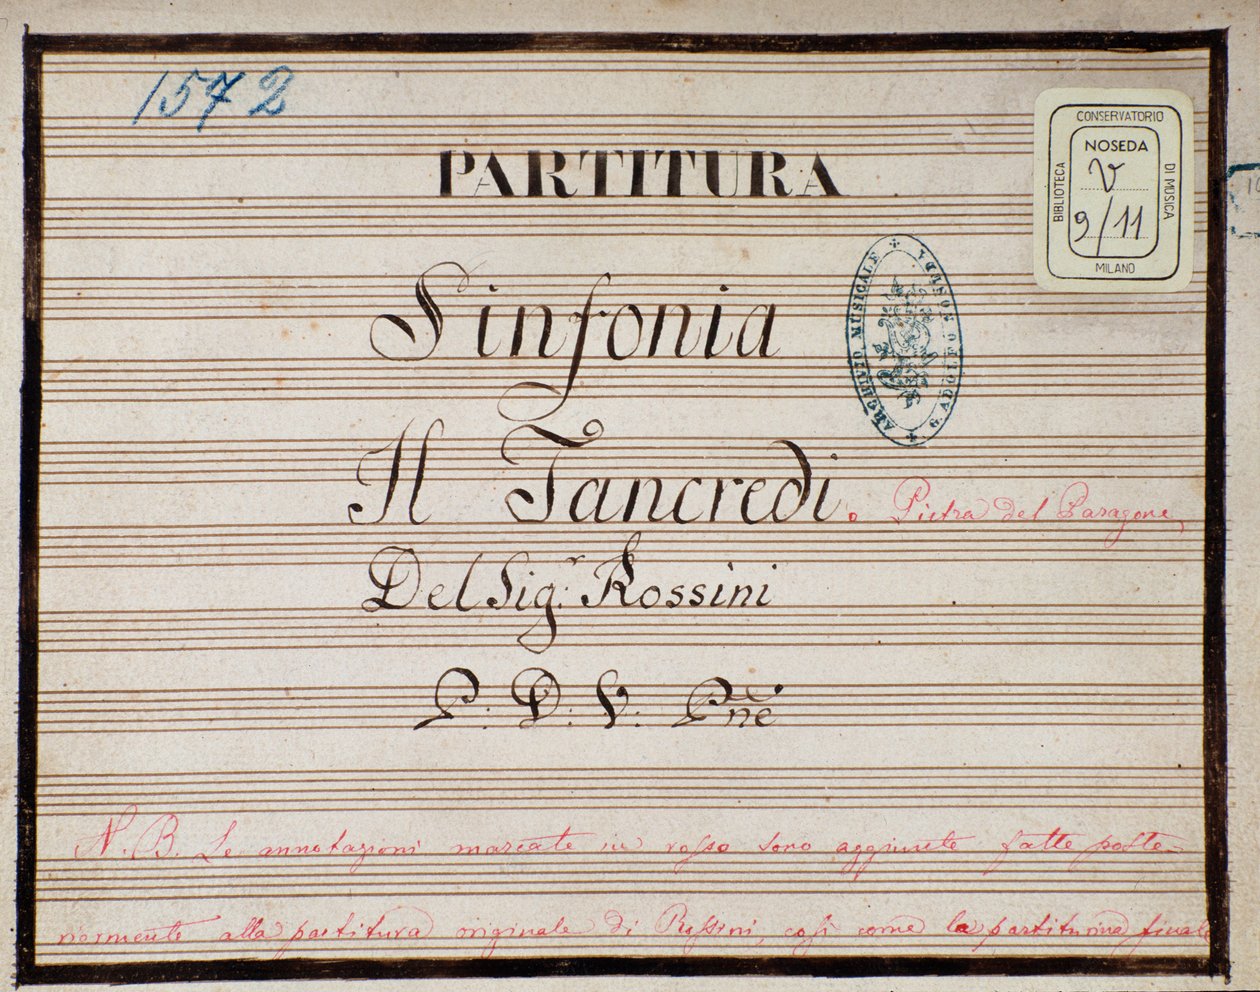 1572
PARTITURA
CONSERVATORIO
BIBLIOTECA
NOSEDA
V
9/11
DI MUSICA
MILANO
Sinfonia
ARCHIVIO MUSICALE
G. ADOLFO NOSEDA
Il Tancredi. o Pietra del Paragone,
Del Sig.r Rossini
P: D: V: Pñe
N.B. Le annotazioni marcate in rosso sono aggiunte fatte poste-
riormente alla partitura originale di Rossini, così come la partiturina finale